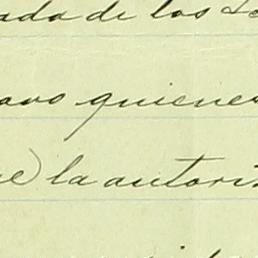 ada de los
avo quienes
e) la autori